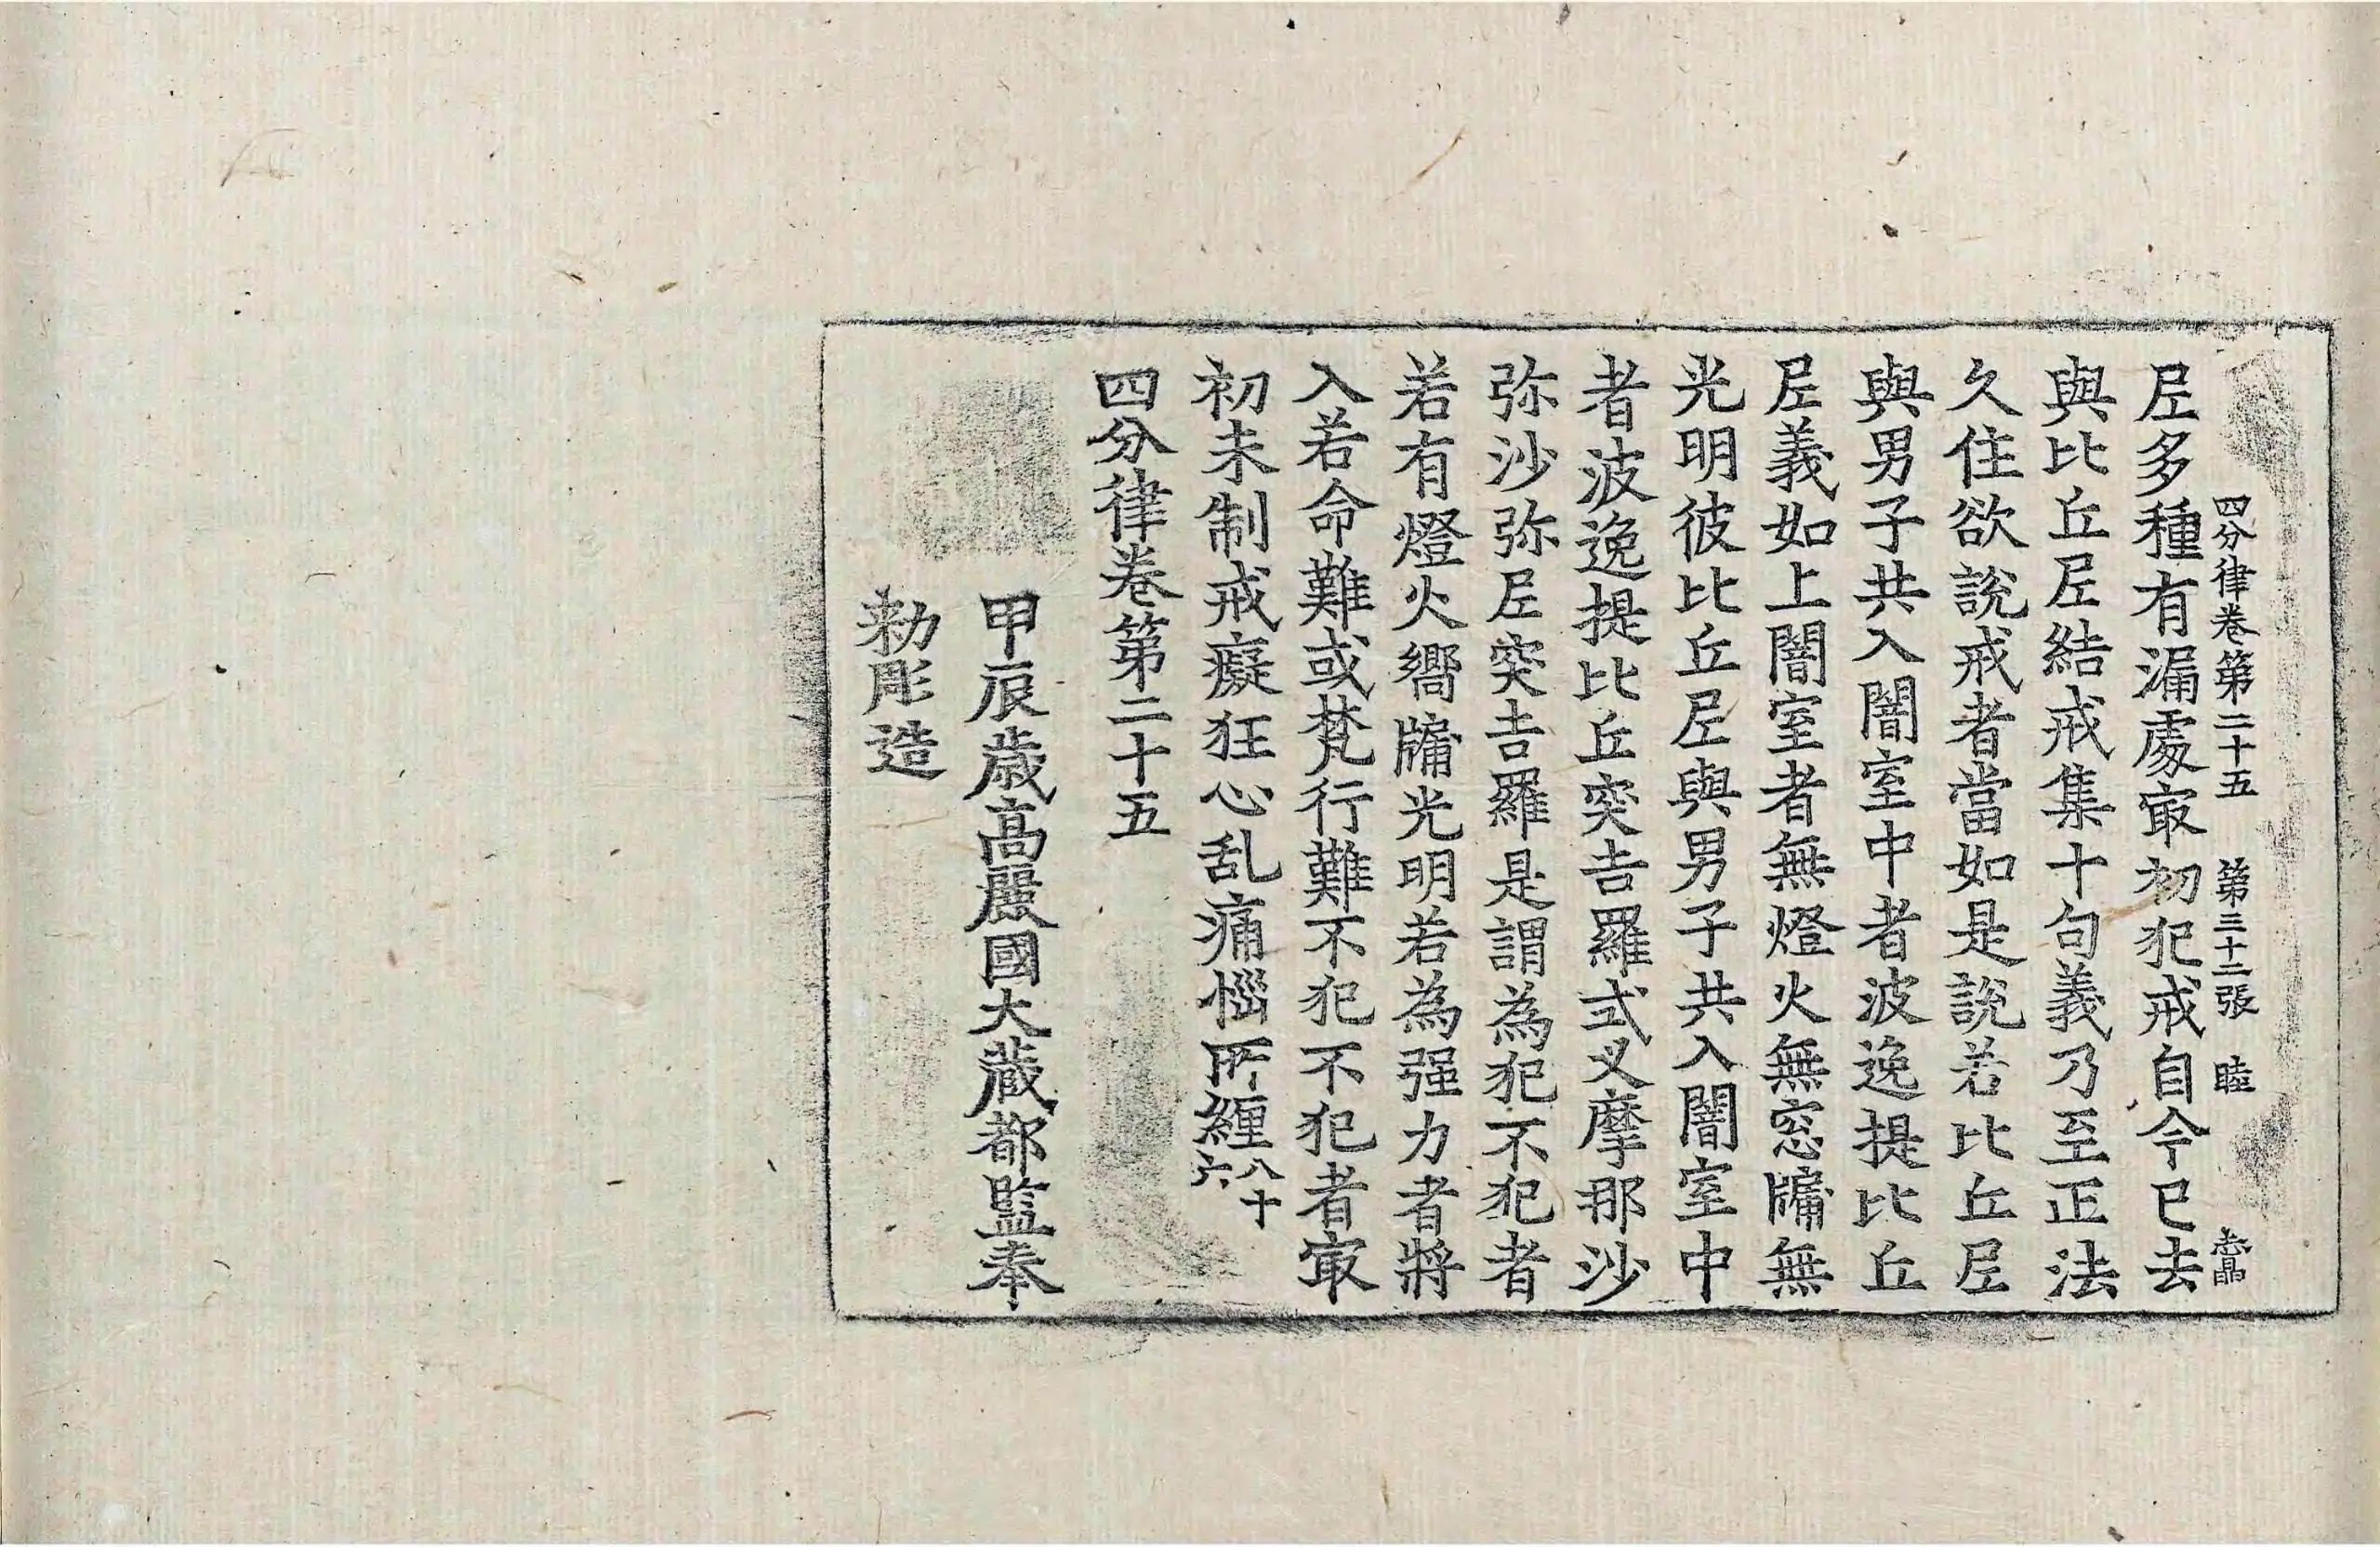 四分律卷第二十五 第三十二張 睦
𡰱多種有漏處㝡初犯戒自今已去
與比丘𡰱結戒集十句義乃至正法
久住欲說戒者當如是說若比丘𡰱
與男子共入闇室中者波逸提比丘
𡰱義如上闇室者無燈火無窓牖無
光明彼比丘𡰱與男子共入闇室中
者波逸提比丘突吉羅式叉摩那沙
弥沙弥𡰱突吉羅是謂為犯不犯者
若有燈火嚮牖光明若為强力者將
入若命難或梵行難不犯不犯者㝡
初未制戒癡狂心乱痛惱所纏八十六
四分律卷第二十五
甲辰歲高麗國大藏都監奉
勅彫造